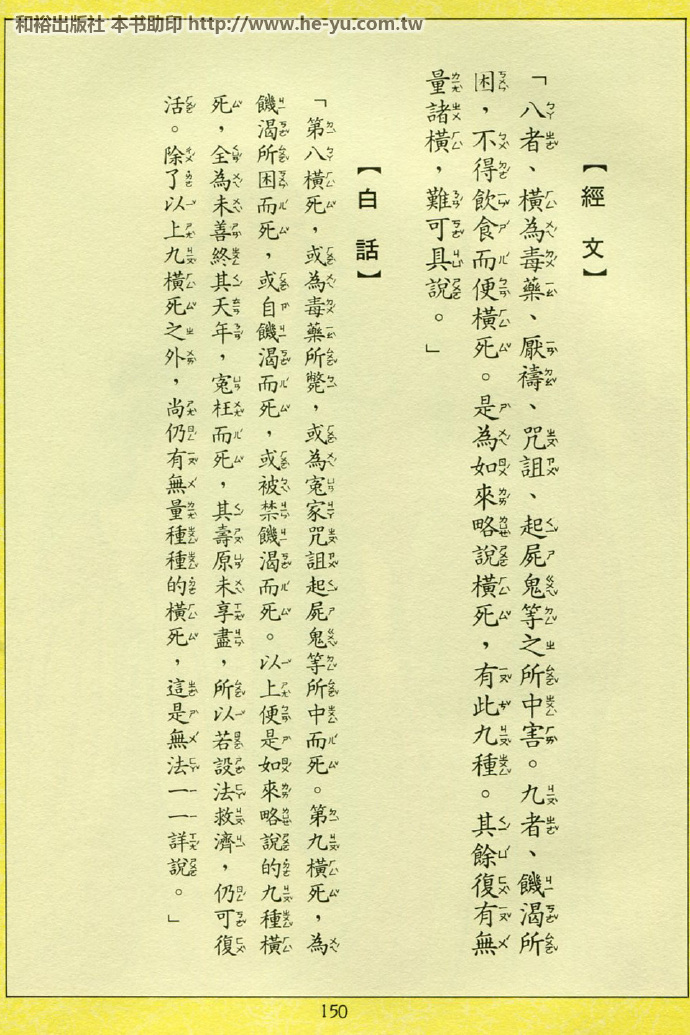 和裕出版社 本书助印 http://www.he-yu.com.tw
【經文】
「八者、橫為毒藥、厭禱、咒詛、起屍鬼等之所中害。九者、饑渴所
困，不得飲食而便橫死。是為如來略說橫死，有此九種。其餘復有無
量諸橫，難可具說。」
【白話】
「第八橫死，或為毒藥所斃，或為冤家咒詛起屍鬼等所中而死。第九橫死，為
饑渴所困而死，或自饑渴而死，或被禁饑渴而死。以上便是如來略說的九種橫
死，全為未善終其天年，冤枉而死，其壽原未享盡，所以若設法救濟，仍可復
活。除了以上九橫死之外，尚仍有無量種種的橫死，這是無法一一詳說。」
150